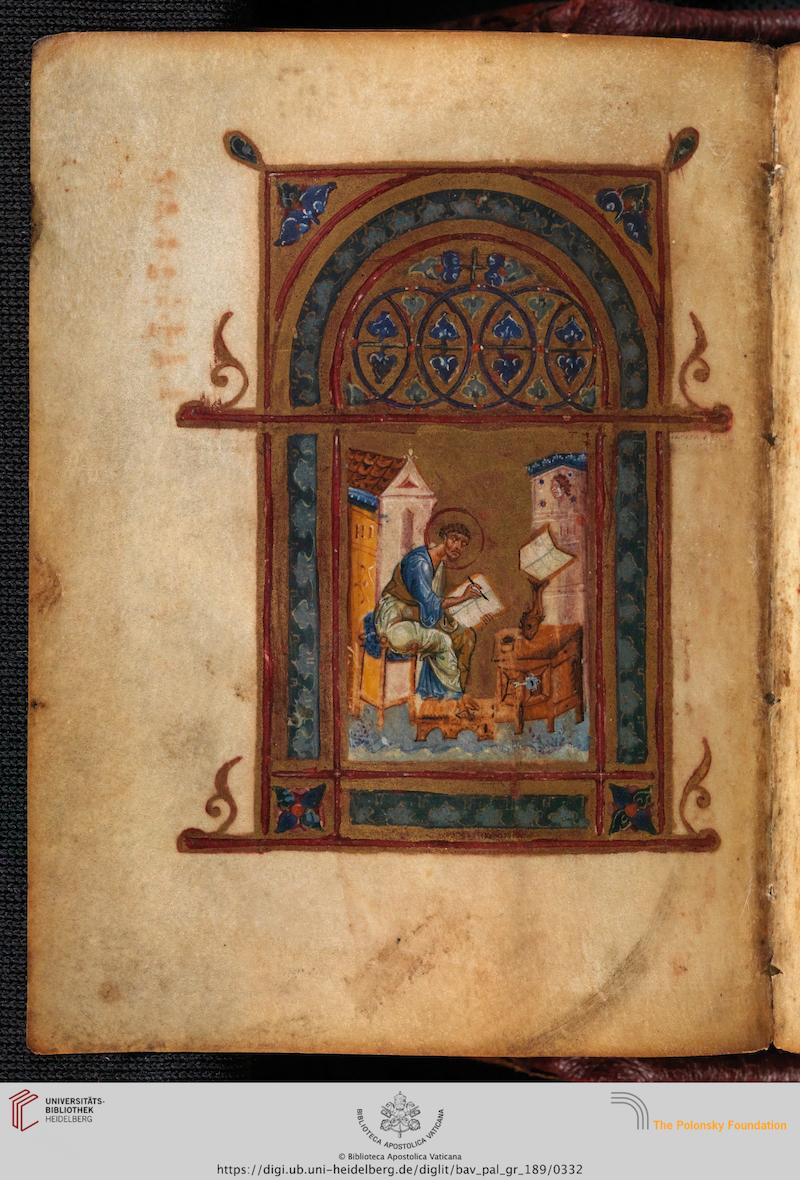 UNIVERSITÄTS-
BIBLIOTHEK
HEIDELBERG
BIBLIOTHECA APOSTOLICA VATICANA
The Polonsky Foundation
© Biblioteca Apostolica Vaticana
https://digi.ub.uni-heidelberg.de/diglit/bav_pal_gr_189/0332